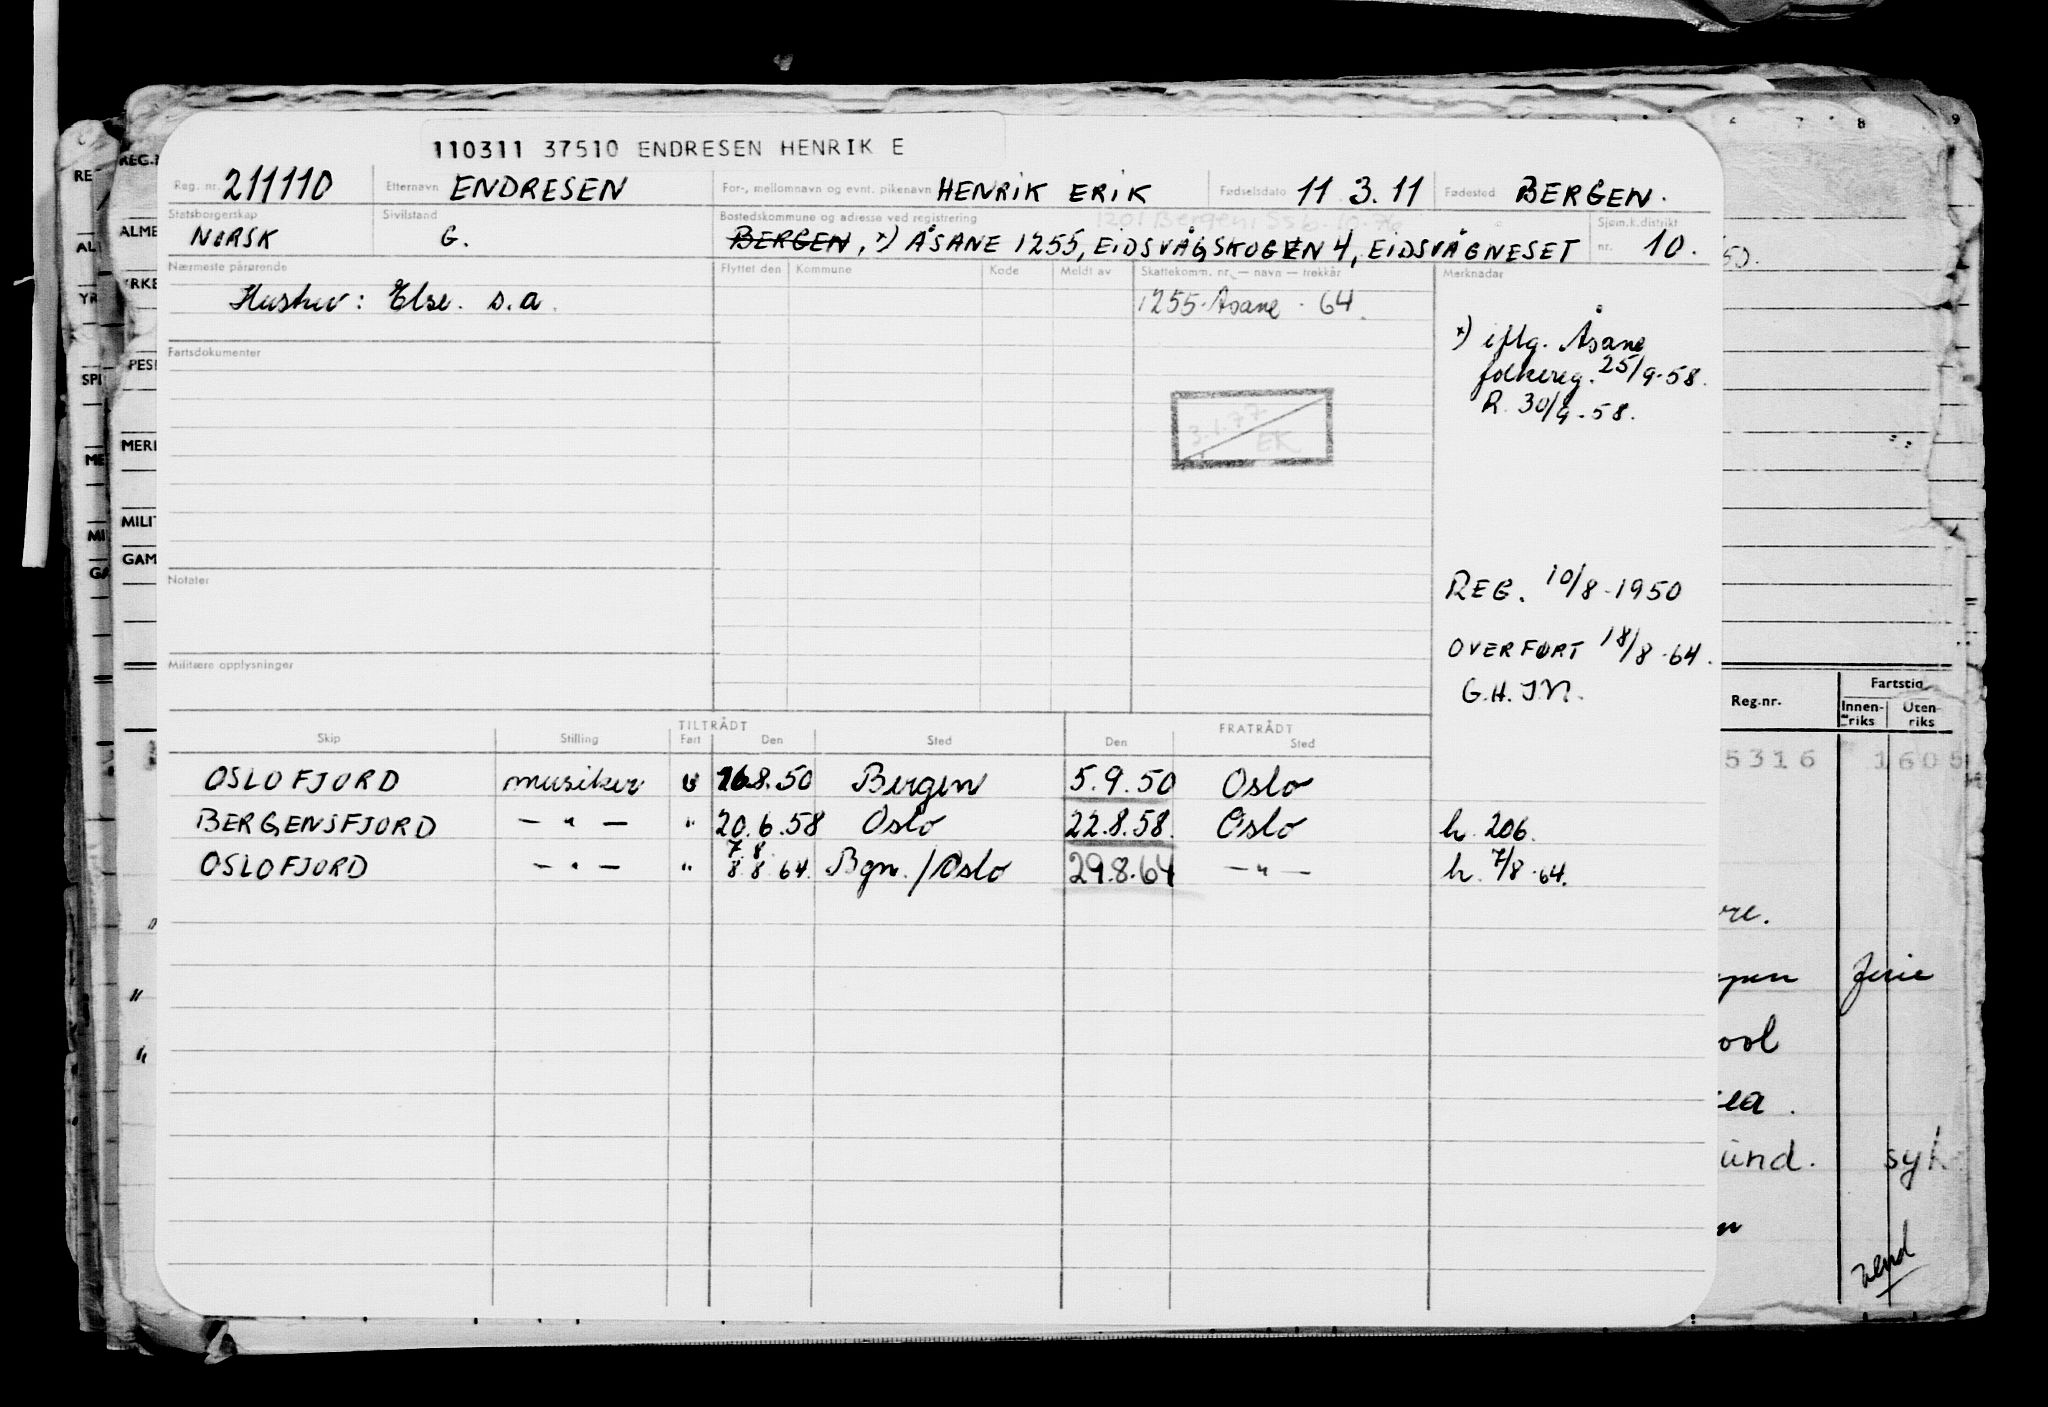 110311 37510 ENDRESEN HENRIK E
Reg. nr. 211110 Etternavn ENDRESEN For-, mellomnavn og evnt. pikenavn HENRIK ERIK Fødselsdato 11 3.11 Fødested BERGEN.
Statsborgerskap NORSK Sivilstand G. Bostedskommune og adresse ved registrering BERGEN, x) ÅSANE 1255, EIDSVÅGSKOGEN 4, EIDSVÅGNESET Sjøm.k.distrikt nr. 10.
1201 Bergen: Ssb. 10.76
Nærmeste pårørende Flyttet den Kommune Kode Meldt av Skattekomm. nr. — navn — trekkår Merknader
Hustru: Else. s.a. 1255. Åsane . 64.
x) iflg. Åsane
folkereg. 25/9-58.
R. 30/9-58.
Fartsdokumenter
3.1.77
EK
Notater
REG. 10/8-1950
OVERFØRT 18/8-64.
G.H. IM.
Militære opplysninger
TILTRÅDT FRATRÅDT
Skip Stilling Fart Den Sted Den Sted
OSLOFJORD musiker U 16.8.50 Bergen 5.9.50 Oslo
BERGENSFJORD — " — " 20.6.58 Oslo 22.8.58. Oslo h. 206.
7. 8.
OSLOFJORD — " — " 8.8.64. Bgn./Oslo 29.8.64 — " — h. 7/8.64.
REG.
ALME
YRKE
SPESI
MERK
MILIT
GAM
RE
AL
YR
SPE
ME
MI
GA
8 9
50.
Reg.nr. Fartstid
Innenriks Utenriks
5316 1605
Ferie
ool
und. syk
vend